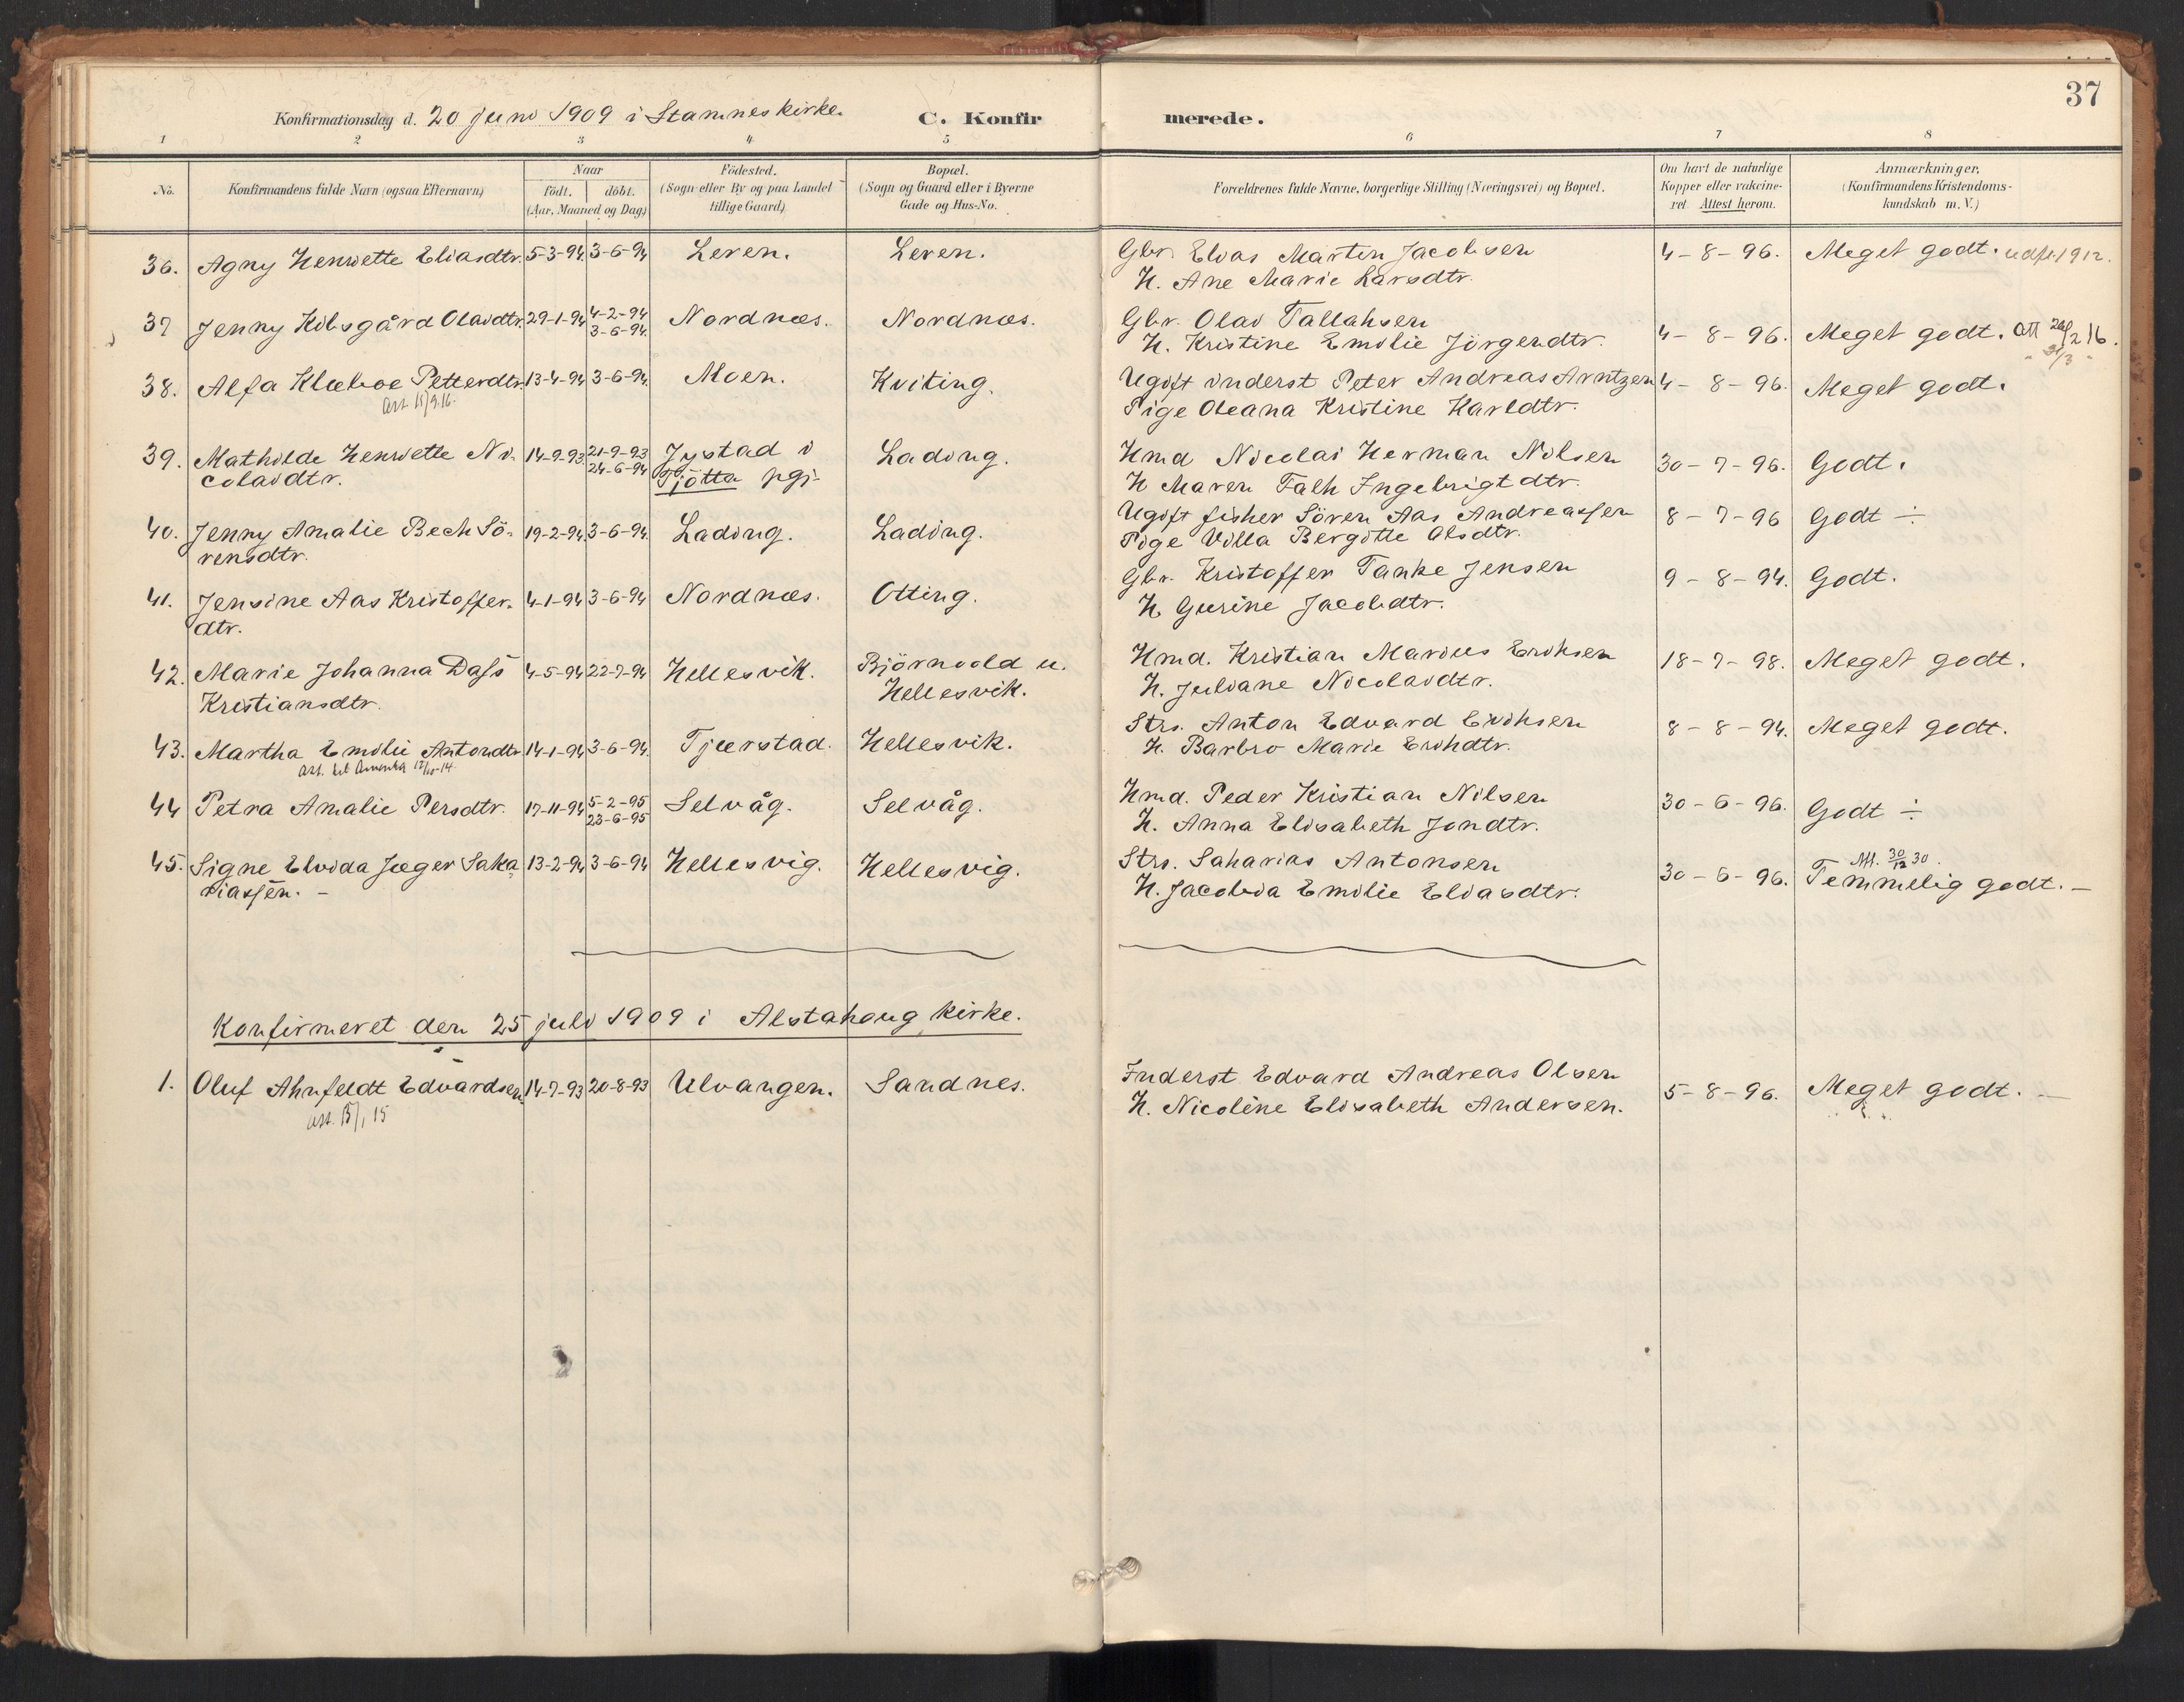 37
Konfirmationsdag d. 20 juni 1909 i Stamnes kirke. C. Konfirmerede.
1 2 3 4 5 6 7 8
No. Konfirmandens fulde Navn (ogsaa Efternavn) Naar födt. döbt. (Aar, Maaned og Dag) Födested. (Sogn eller By og paa Landet tillige Gaard) Bopæl. (Sogn og Gaard eller i Byerne Gade og Hus-No. Forældrenes fulde Navne, borgerlige Stilling (Næringsvei) og Bopæl. Om havt de naturlige Kopper eller vakcineret. Attest herom. Anmærkninger. (Konfirmandens Kristendomskundskab m. V.)
36. Agny Henriette Eliasdtr. 5-3-94. 3-6-94 Leren. Leren. Gbr. Elias Martin Jacobsen 4-8-96. Meget godt. udfl. 1912.
H. Ane Marie Larsdtr.
37 Jenny Kilsgård Olaidtr. 29-1-94 4-2-94 Nordnæs. Nordnæs. Gbr. Olai Fallahsen 4-8-96. Meget godt. Att 26/2 16.
3-6-94. H. Kristine Emilie Jörgendtr. " 31/3 "
38. Alfa Klæboe Petterdtr. 13-4-94 3-6-94. Moen. Kviting. Ugift inderst Peter Andreas Arntzen 4-8-96. Meget godt.
att. 15/9.16. Pige Oleana Kristine Karldtr.
39. Mathilde Henriette Ni- 14-9-93 21-9-93 Jystad i Lading. Hmd Nicolai Herman Nilsen 30-7-96. Godt.
colaidtr. 24-6-94 Tjötta pgj. H Maren Falh Ingebrigtdtr.
40. Jenny Amalie Bech Sö- 19-2-94. 3-6-94. Lading. Lading. Ugift fisher Sören Aas Andreassen 8-7-96 Godt ÷
rensdtr. Pige Villa Bergitte Olsdtr.
41. Jensine Aas Kristoffer- 4-1-94 3-6-94 Nordnæs. Otting. Gbr. Kristoffer Tanke Jensen 9-8-94. Godt.
dtr. H. Gurine Jacobdtr.
42. Marie Johanna Dass 4-5-94 22-7-94 Hellesvik. Björnvold u. Hmd. Kristian Marius Erihsen 18-7-98. Meget godt.
Kristiansdtr. Hellesvik. H. Juliane Nicolaidtr.
43. Martha Emilie Antondtr 14-1-94 3-6-94. Tjærstad. Hellesvik. Strs. Anton Edvard Erihsen 8-8-94. Meget godt.
att. til Amerika 12/10-14 H. Barbro Marie Erihdtr.
44 Petra Amalie Persdtr. 17-11-94 5-2-95 Selvåg. Selvåg. Hmd. Peder Kristian Nilsen 30-6-96. Godt ÷
23-6-95 H. Anna Elisabeth Jondtr.
45. Signe Elvida Jæger Saka 13-2-94 3-6-94 Hellesvig. Hellesvig. Strs. Saharias Antonsen 30-6-96. Att. 30/12 30.
riassen. - H. Jacobia Emilie Eliasdtr. Temmelig godt. -
Konfirmeret den 25 juli 1909 i Alstahoug kirke.
1. Oluf Ahnfeldt Edvardsen. 14-7-93 20-8-93 Ulvangen. Sandnes. Inderst Edvard Andreas Olsen 5-8-96. Meget godt. -
att. 15/1 15 H. Nicoline Elisabeth Andersen.